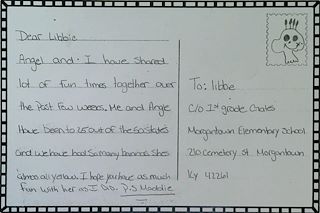 Dear Libbie
Angel and I have Shared
lot of fun times together over
the Past Few weeks. Me and Angie
Have been to 25 out of the 50 States
and we have had so many bananas Shes
almost all yellow. I hope you have as much
fun with her as I Did. P.S Maddie
To: libbe
C/o 1st grade Coates
Morgantown Elementary School
210 Cemetery St. Morgantown
Ky 42261